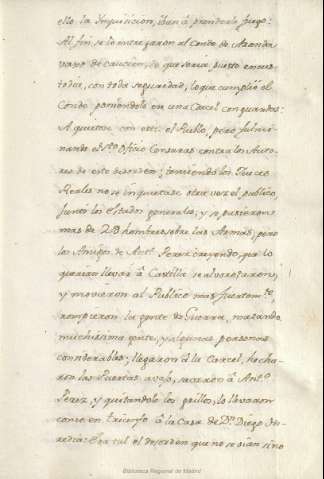 ello la Inquisicion, iban à prenderle fuego:
Al fin, se lo entregaron al Conde de Aranda
de caucion, que seria puesto en cus-
todia, con toda seguridad, lo que cumplió el
Conde poniendolo en una Carcel con guardas:
Aquietose con esto el Pueblo, pero fulmi-
nando el Sto. Oficio Censuras contra los Auto-
res de este desorden; temiendo los Jueces
Reales no se inquietase otra vez el publico,
Juntó los Estados generales, y se pusieron
mas de 2B hombres sobre las Armas; pero
los Amigos de Antº. Perez creyendo, que lo
querian llevar â Castilla se alvorotaron,
y movieron al Publico mas fuertemte.,
rompieron la gente de Guerra, matando
muchisima gente, y algunas personas
considerables; llegaron â la Carcel, hecha-
ron las Puertas avajo, sacaron â Antº.
Perez, y quitandole los grillos, lo llevaron
como en triunfo â la Casa de Dn. Diego de He-
redia: Era tal el desorden que no se oían sino
Biblioteca Regional de Madrid